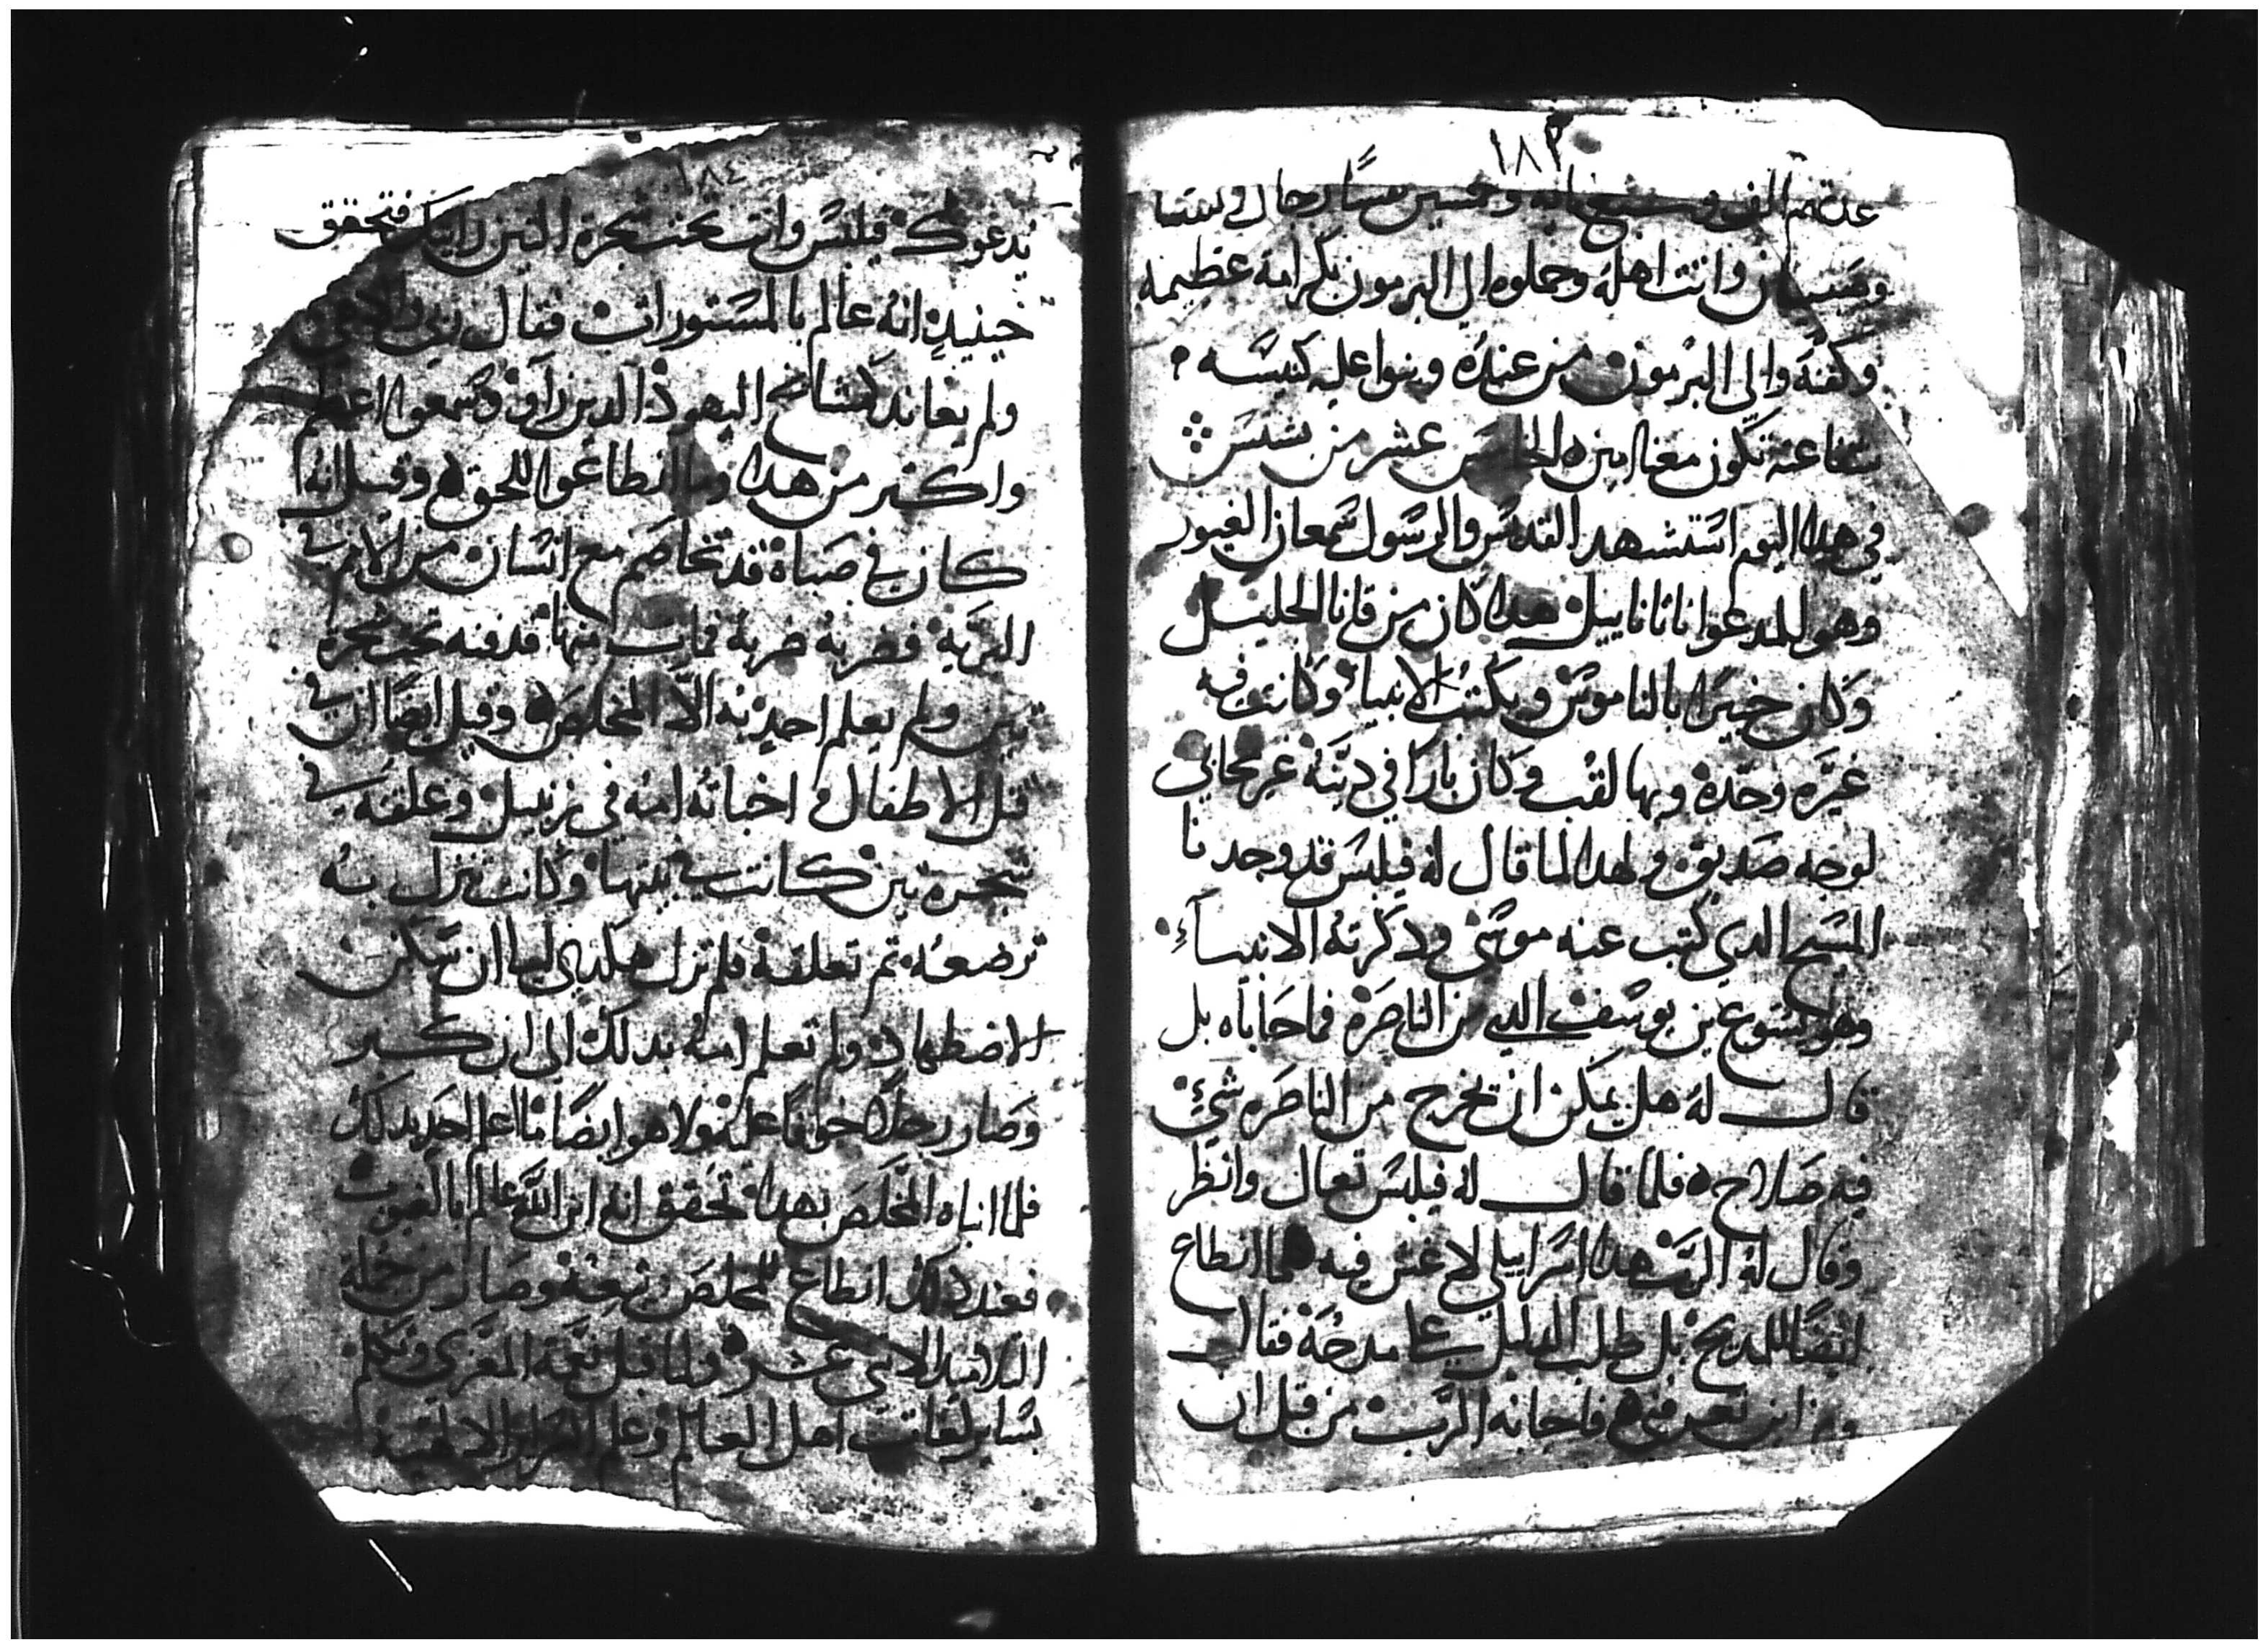 ١٨٣
عدتهم الف و وخمسين رجال ونسا
وصبيان واتت اهله وحملوه الى البرمون بكرامة عظيمه
وكفنوا الى البرمون من عنده وبنوا عليه كنيسه
شفاعته تكون معنا امين الخامس عشر من بشنس
في هدا اليوم استشهد القديس والرسول سمعان الغيور
وهو المدعوا ناتاناييل هدا كان من قانا الجليل
وكان خبيرا بالناموس وبكتب الانبيا وكانت فيه
غيره وحده وبها لقب وكان بارا في دينه غير محابي
لوجه صديق ولهدا لما قال له فيلبس قد وجدنا
المسيح الدي كتب عنه موسى ودكرته الانبيآء
وهو يسوع بن يوسف الدي من الناصره فما حاباه بل
قال له هل يمكن ان يخرج من الناصره شيء
فيه صلاح فلما قال له فيلبس تعال وانظر
وقال له الرب هدا اسراييلي لا غش فيه فما انطاع
ايضا للمديح بل طلب الدليل على مدحه فقال
من اين تعرفني فاجابه الرب من قبل ان
١٨٤
يدعوك فيلبس وانت تحت شجرة التين رايتك فتحقق
حينيد انه عالم بالمستورات فقال
ولم يعاند كمشايخ اليهود الدين راوا وسمعوا اعظم
واكتر من هدا وما انطاعوا للحق وقيل انه
كان في صباه قد تخاصم مع انسان من الامم في
البريه فضربه ضربه فمات منها فدفنه تحت شجرة
تين ولم يعلم احد به الا المخلص وقيل ايضا ان في
قتل الاطفال اخباته امه في زنبيل وعلقته في
شجرة تين كانت في بيتها وكانت تنزل به
ترضعه ثم تعلقه فلم تزل هكدي الى ان سكن
الاضطهاد ولم تعلم امه بدلك الى ان كبر
وصار رجلا خوفا عليه ولا هو ايضا ما اعلم احد بدلك
فلما انباه المخلص بهدا تحقق انه ابن الله عالم بالغيوب
فعند دلك انطاع للمخلص وتبعه وصار من جملة
التلاميد الاتني عشر ولما قبل نعمة المعزي وتكلم
بساير لغات اهل العالم وعلم السراير الالهيه